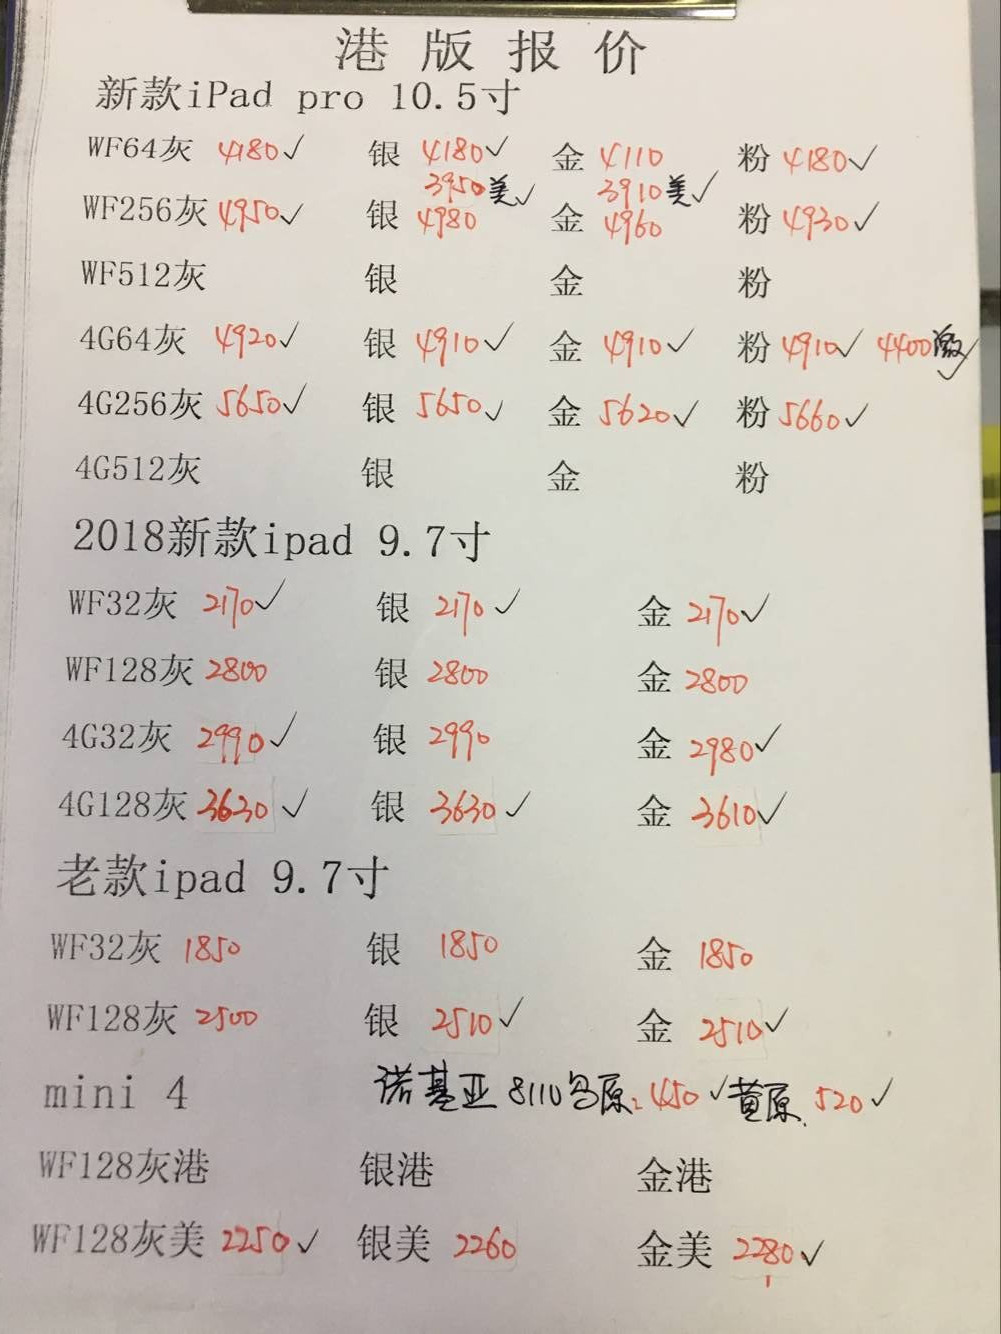 港版报价
新款iPad pro 10.5寸
WF64灰 4180✓ 银 4180✓ 金 4110 粉 4180✓
3950美✓ 3910美✓
WF256灰 4950✓ 银 4980 金 4960 粉 4930✓
WF512灰 银 金 粉
4G64灰 4920✓ 银 4910✓ 金 4910✓ 粉 4910✓ 4400激✓
4G256灰 5650✓ 银 5650✓ 金 5620✓ 粉 5660✓
4G512灰 银 金 粉
2018新款ipad 9.7寸
WF32灰 2170✓ 银 2170✓ 金 2170✓
WF128灰 2800 银 2800 金 2800
4G32灰 2990✓ 银 2990 金 2980✓
4G128灰 3630✓ 银 3630✓ 金 3610✓
老款ipad 9.7寸
WF32灰 1850 银 1850 金 1850
WF128灰 2500 银 2510✓ 金 2510✓
mini 4 诺基亚 8110 原: 450✓ 黄原. 520✓
WF128灰港 银港 金港
WF128灰美 2250✓ 银美 2260 金美 2280✓